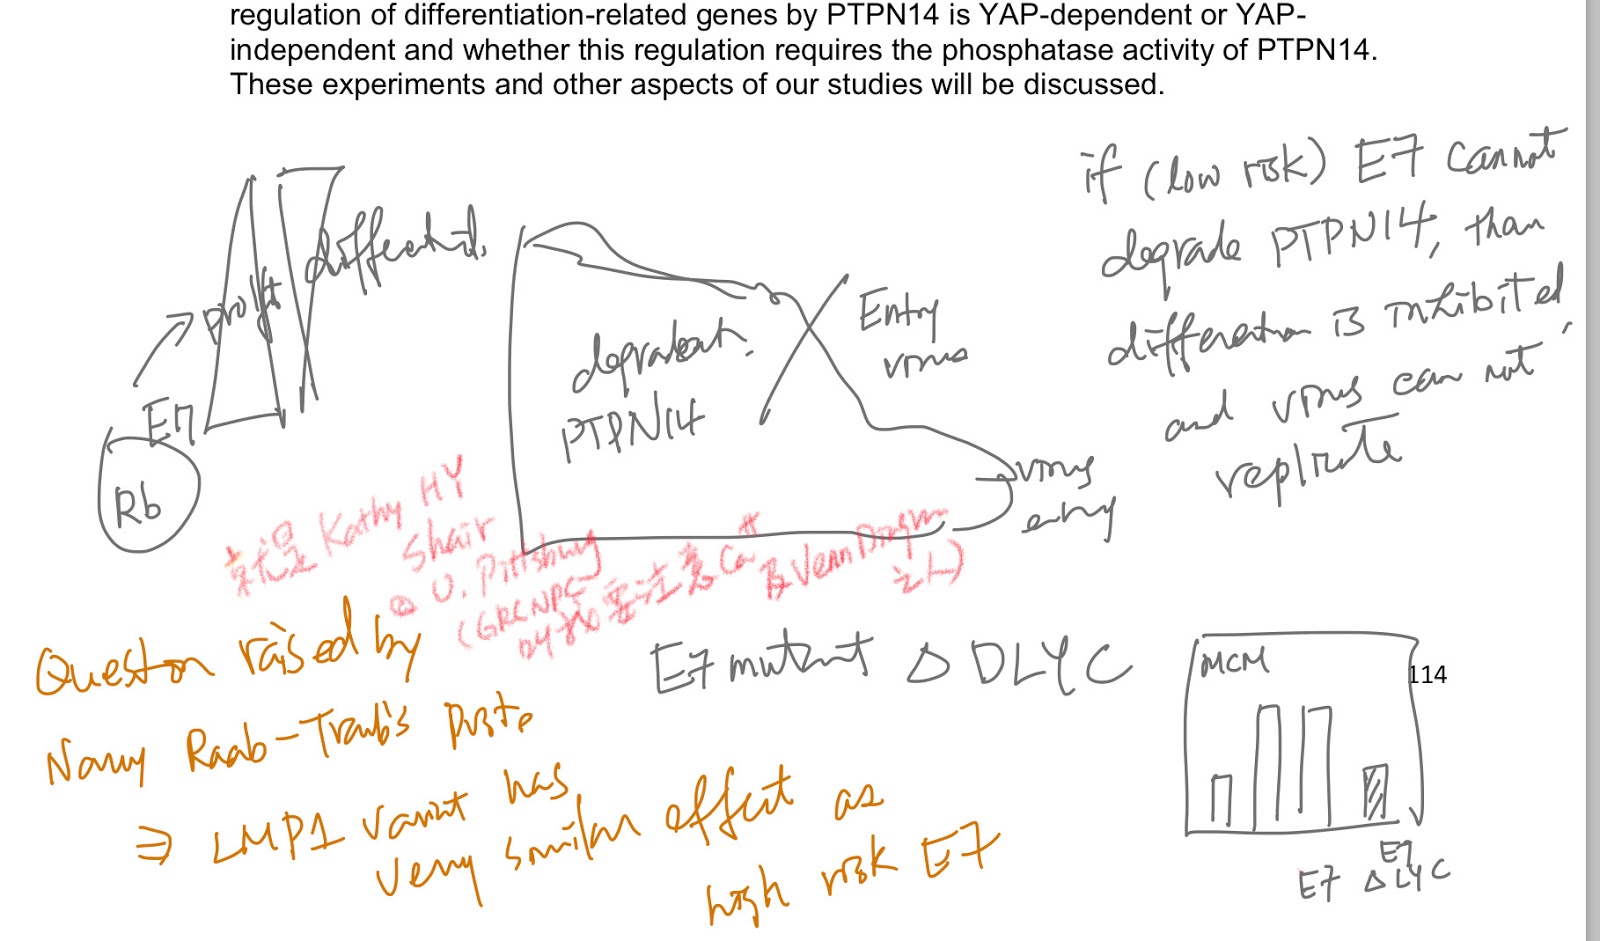 regulation of differentiation-related genes by PTPN14 is YAP-dependent or YAP-
independent and whether this regulation requires the phosphatase activity of PTPN14.
These experiments and other aspects of our studies will be discussed.
if (low risk) E7 cannot
degrade PTPN14, than
is inhibited
and virus can not
replicate
E7
Rb
PTPN14
Entry
virus
virus
entry
Kathy HY
Shair
@ U. Pittsburg
Venn Diagram
Question raised by
Nancy Raab-Traub's
⇒ LMP1 variant has
very similar effect as
high risk E7
E7 mutant Δ DLYC
MCM
114
E7
E7 Δ LYC